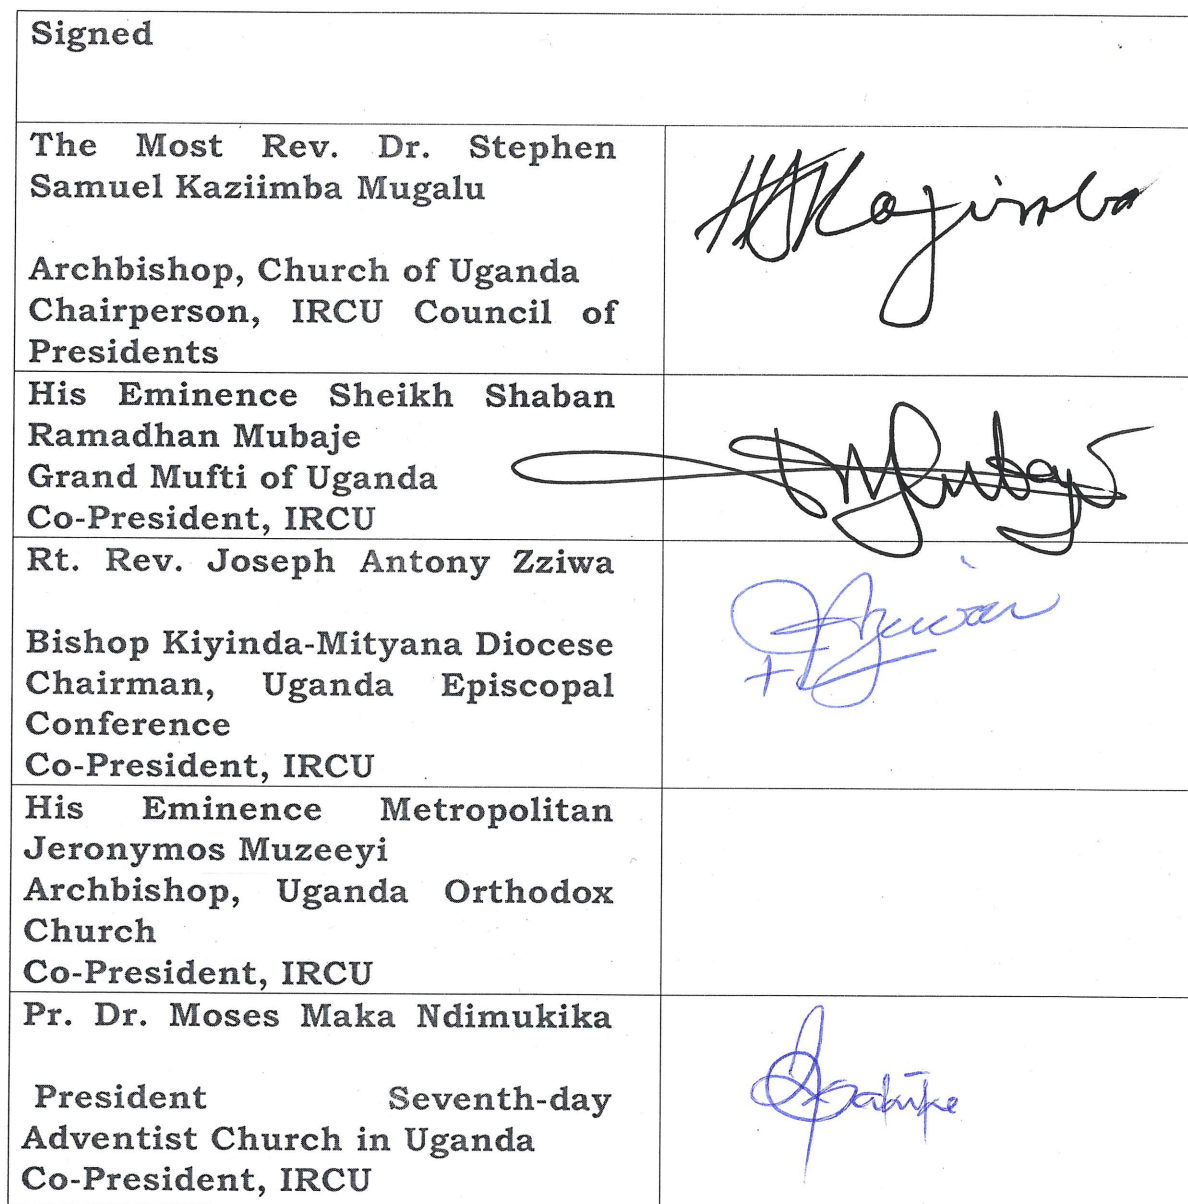 Signed
The Most Rev. Dr. Stephen
Samuel Kaziimba Mugalu
Archbishop, Church of Uganda
Chairperson, IRCU Council of
Presidents
His Eminence Sheikh Shaban
Ramadhan Mubaje
Grand Mufti of Uganda
Co-President, IRCU
Rt. Rev. Joseph Antony Zziwa
Bishop Kiyinda-Mityana Diocese
Chairman, Uganda Episcopal
Conference
Co-President, IRCU
His Eminence Metropolitan
Jeronymos Muzeeyi
Archbishop, Uganda Orthodox
Church
Co-President, IRCU
Pr. Dr. Moses Maka Ndimukika
President Seventh-day
Adventist Church in Uganda
Co-President, IRCU